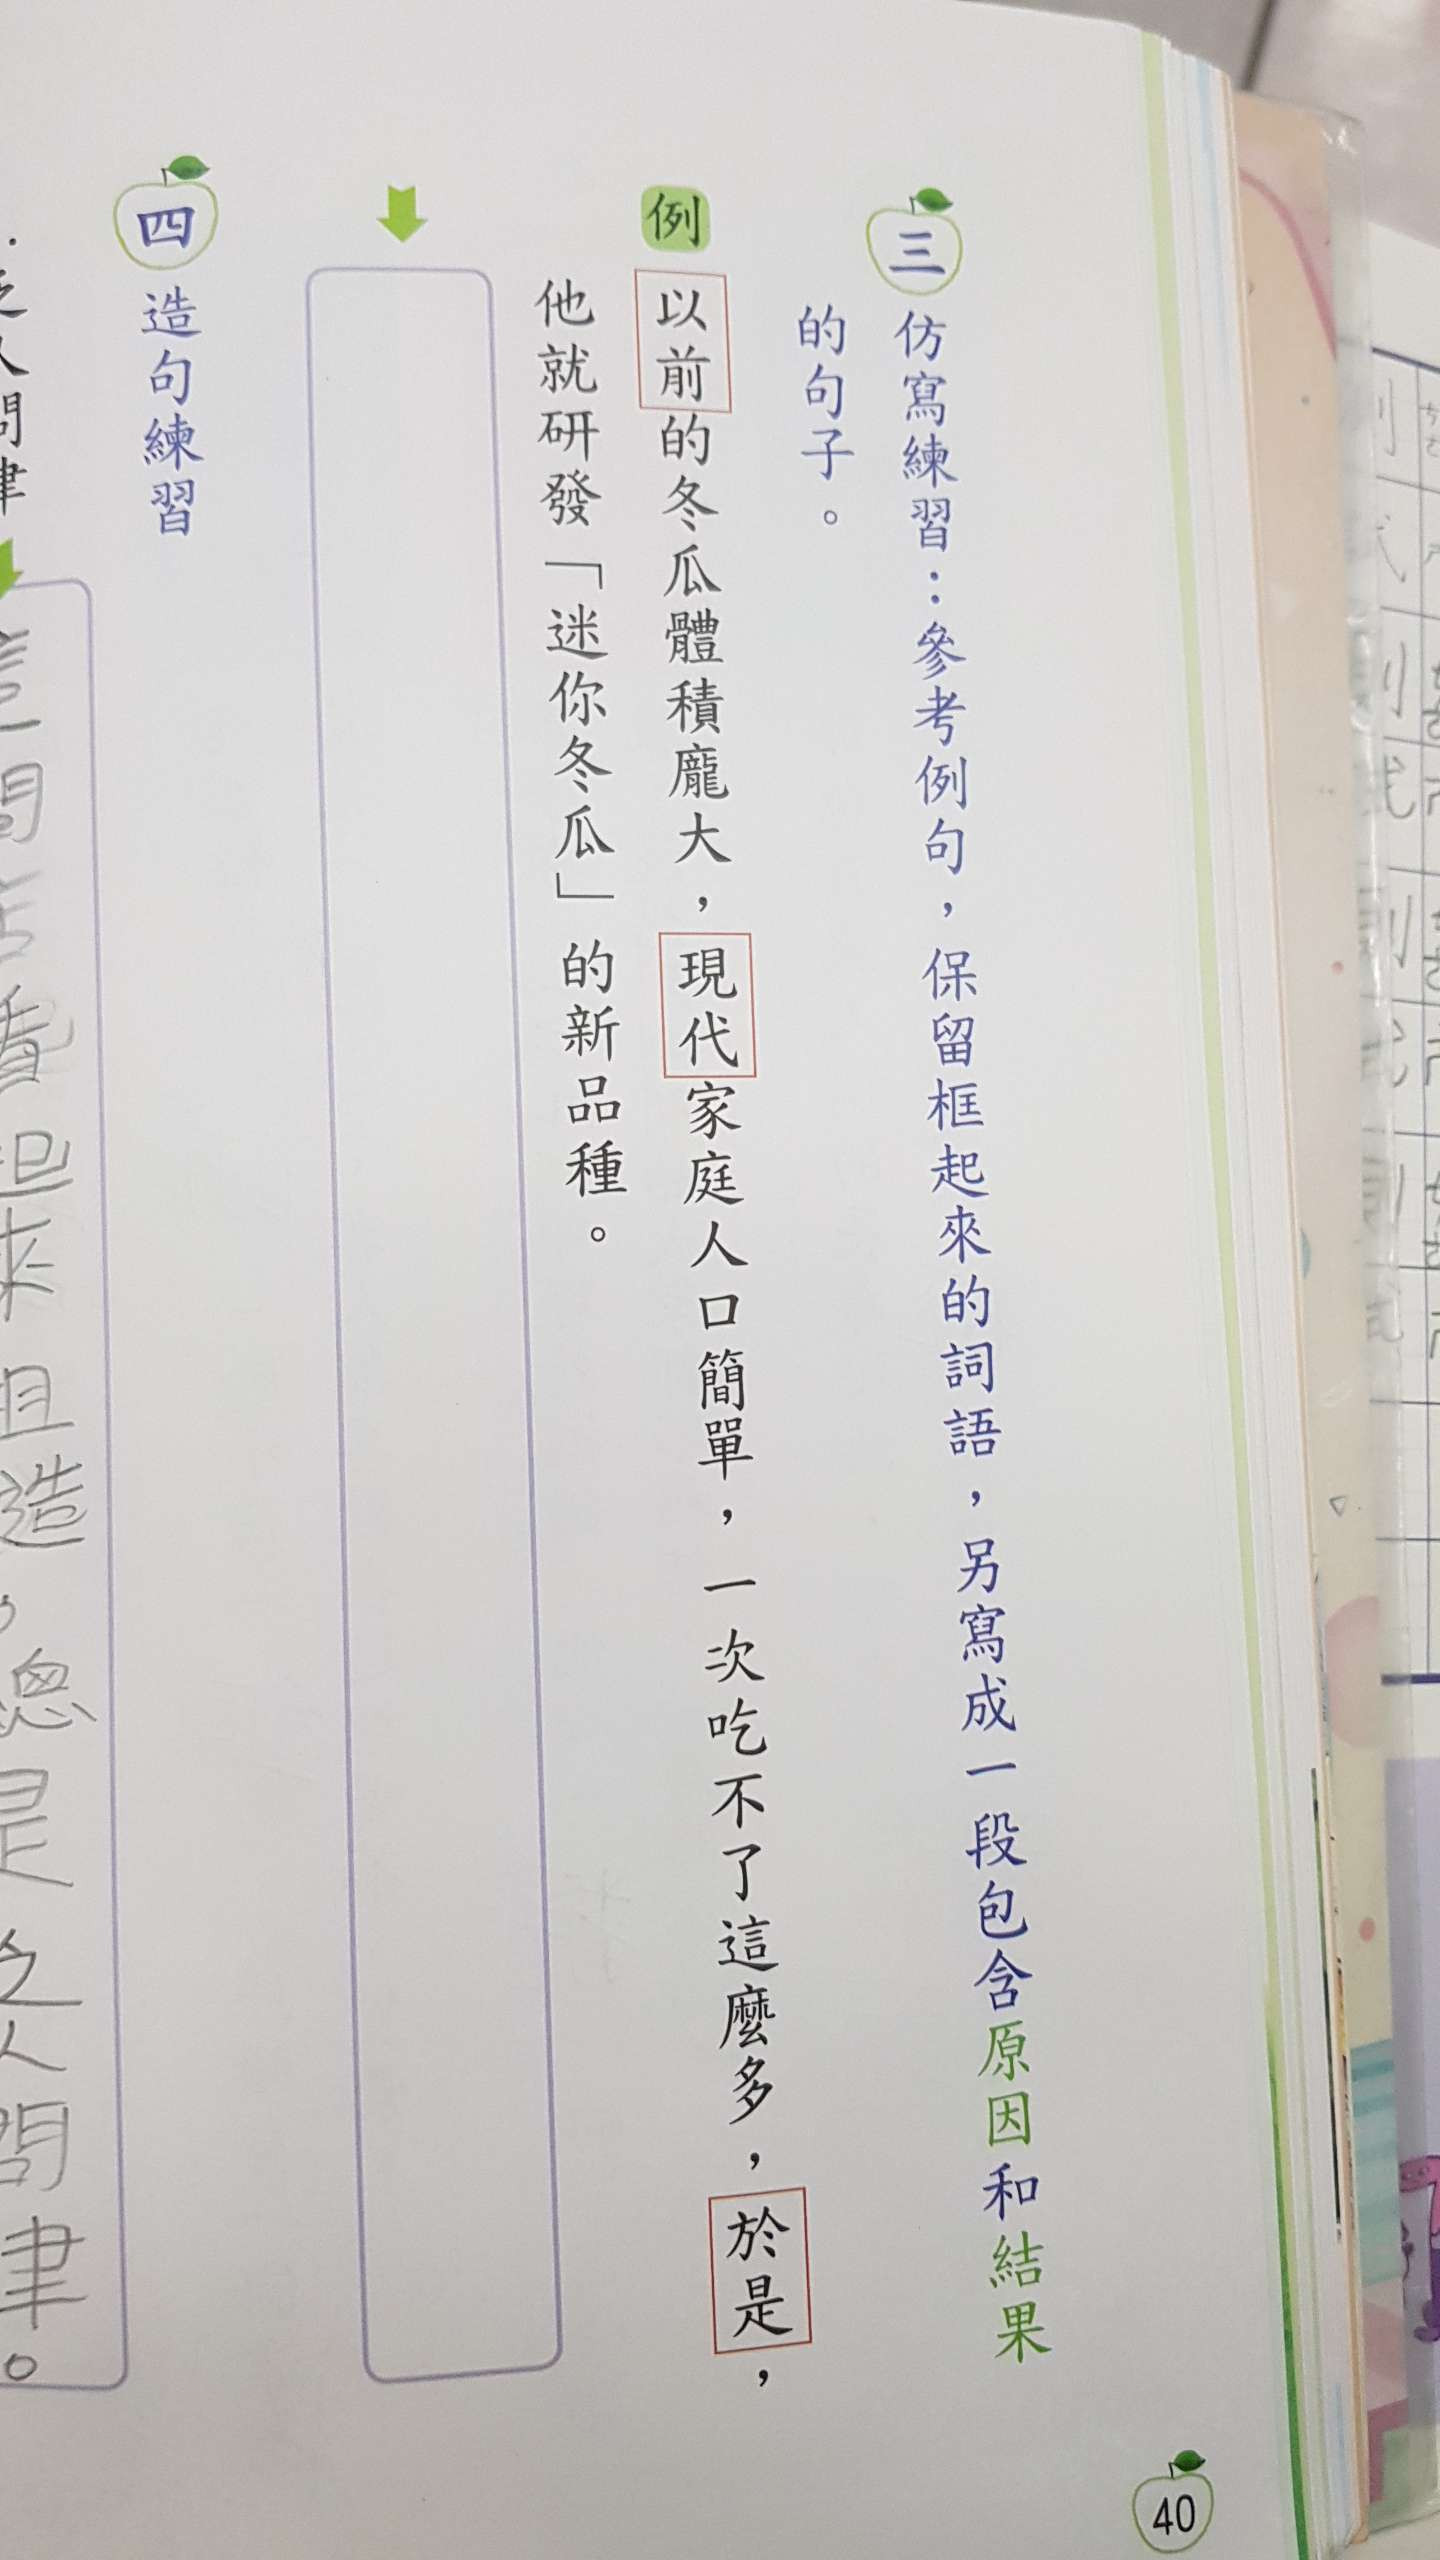 三 仿寫練習：參考例句，保留框起來的詞語，另寫成一段包含原因和結果
的句子。
例 以前的冬瓜體積龐大，現代家庭人口簡單，一次吃不了這麼多，於是，
他就研發「迷你冬瓜」的新品種。
四 造句練習
乏人問津
起來粗造。總是乏人問聿。
40